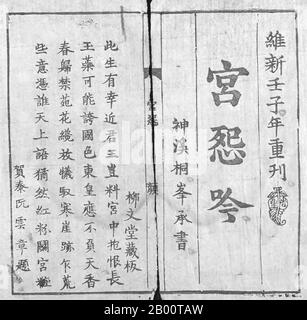 維新壬子年重刊
宮怨吟
神溪桐峯承書
柳文堂藏板
宮怨
此生有幸近君王豈料宮中抱恨長
玉蘂可能誇國色東皇應不負天香
春歸禁苑花纔放犧馭寒崖跡乍荒
些意憑誰天上語猜然紅粉鬪宮粧
賀泰阮雲章題
2B00TAW